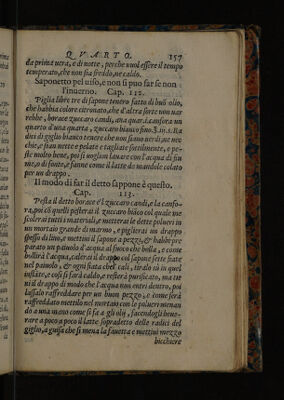 QVARTO. 157
da prima vera, e di notte, perche vuol essere il tempo
temperato, che non sia freddo, ne caldo.
Saponetto pel uiso, e non si puo far se non
l'inuerno. Cap. 112.
Piglia libre tre di sapone tenero fatto di buō olio,
che habbia colore citronato, che d'altra sorte non uar
rebbe, borace zuccaro candi, ana quar. i. canfora un
quarto d'una quarta, zuccaro bianco fino. ℥. iii. s. Ra
dici di giglio bianco tenere che non siano uerdi, ne uec
chie, e sian nette e pelate e tagliate sottilmente, e pe-
ste molto bene, poi si uogliam lauare con l'acqua di fiu
me, o di fonte, e fanne come il latte da mandole colato
per un drappo.
Il modo di far il detto sappone è questo.
Cap. 113.
Pesta il detto borace e'l zuccaro candi, e la canfo-
ra, poi cō quelli pesterai il zuccaro biāco col quale me
scolerai tutti i materiali, e metterai le dette poluere in
un mortaio grande di marmo, e piglierai un drappo
spesso di lino, e mettiui il sapone a pezzi, & habbi pre
parato un paiuolo d'acqua al fuoco che bolla, e come
bollirà l'acqua, calerai il drappo col sapone sette fiate
nel paiuolo, & ogni fiata che'l cali, tiralo sù in quel
instāte, e cosi si farà caldo, e resterà purificato, ma tie
ni il drappo di modo che l'acqua non entri dentro, poi
lassalo raffreddare per un buon pezzo, e come serà
raffreddato mettilo nel mortaio con le poluere menan
do a una mano come si fa a gli olij, facendogli beue-
rare a poco a poco il latte sopradetto delle radici del
giglio, a guisa che si mena la fauetta e mettini mezzo
bicchiere